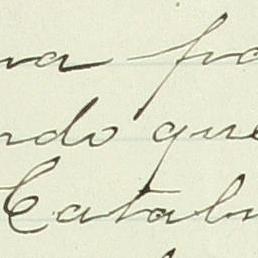 va fra
ndo que
Catalu